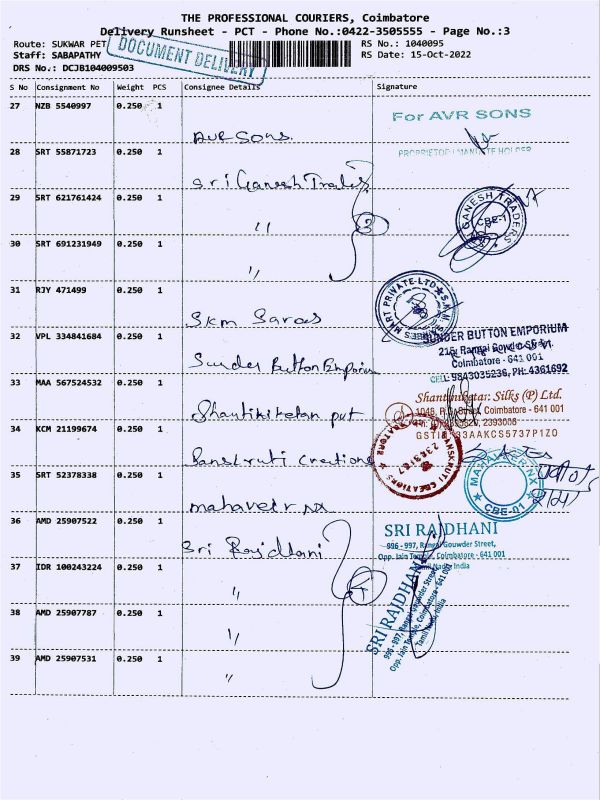 THE PROFESSIONAL COURIERS, Coimbatore
Delivery Runsheet - PCT - Phone No.:0422-3505555 - Page No.:3
Route: SUKWAR PET
RS No.: 1040095
Staff: SABAPATHY
RS Date: 15-Oct-2022
DRS No.: DCJB104009503
DOCUMENT DELIVERY
S No Consignment No Weight PCS Consignee Details Signature
27 NZB 5540997 0.250 1
AVR Sons.
For AVR SONS
28 SRT 55871723 0.250 1
Sri Ganesh Trades
29 SRT 621761424 0.250 1
"
3
GANESH TRADERS
CBE-1
30 SRT 691231949 0.250 1
"
31 RJY 471499 0.250 1
Skm Saras
MART PRIVATE LTD
32 VPL 334841684 0.250 1
Sunder Button Emporium
SUNDER BUTTON EMPORIUM
215, Rangai Gowder St
Coimbatore - 641 001
CELL: 9843035236, PH: 4361692
33 MAA 567524532 0.250 1
Shantiniketan pvt
Shantiniketan Silks (P) Ltd.
Coimbatore - 641 001
2393006
34 KCM 21199674 0.250 1
Sanskruti Creations
SANSKRUTI CREATIONS
35 SRT 52378338 0.250 1
mahaveer NX
MAHAVEER NX
CBE-01
36 AMD 25907522 0.250 1
Sri Rajdhani
SRI RAJDHANI
996 - 997, Rangai Gouwder Street,
Opp. Jain Temple, Coimbatore - 641 001
Tamil Nadu India
37 IDR 100243224 0.250 1
"
38 AMD 25907787 0.250 1
"
SRI RAJDHANI
996 - 997, Rangai Gouwder Street,
Opp. Jain Temple, Coimbatore - 641 001
Tamil Nadu, India
39 AMD 25907531 0.250 1
"